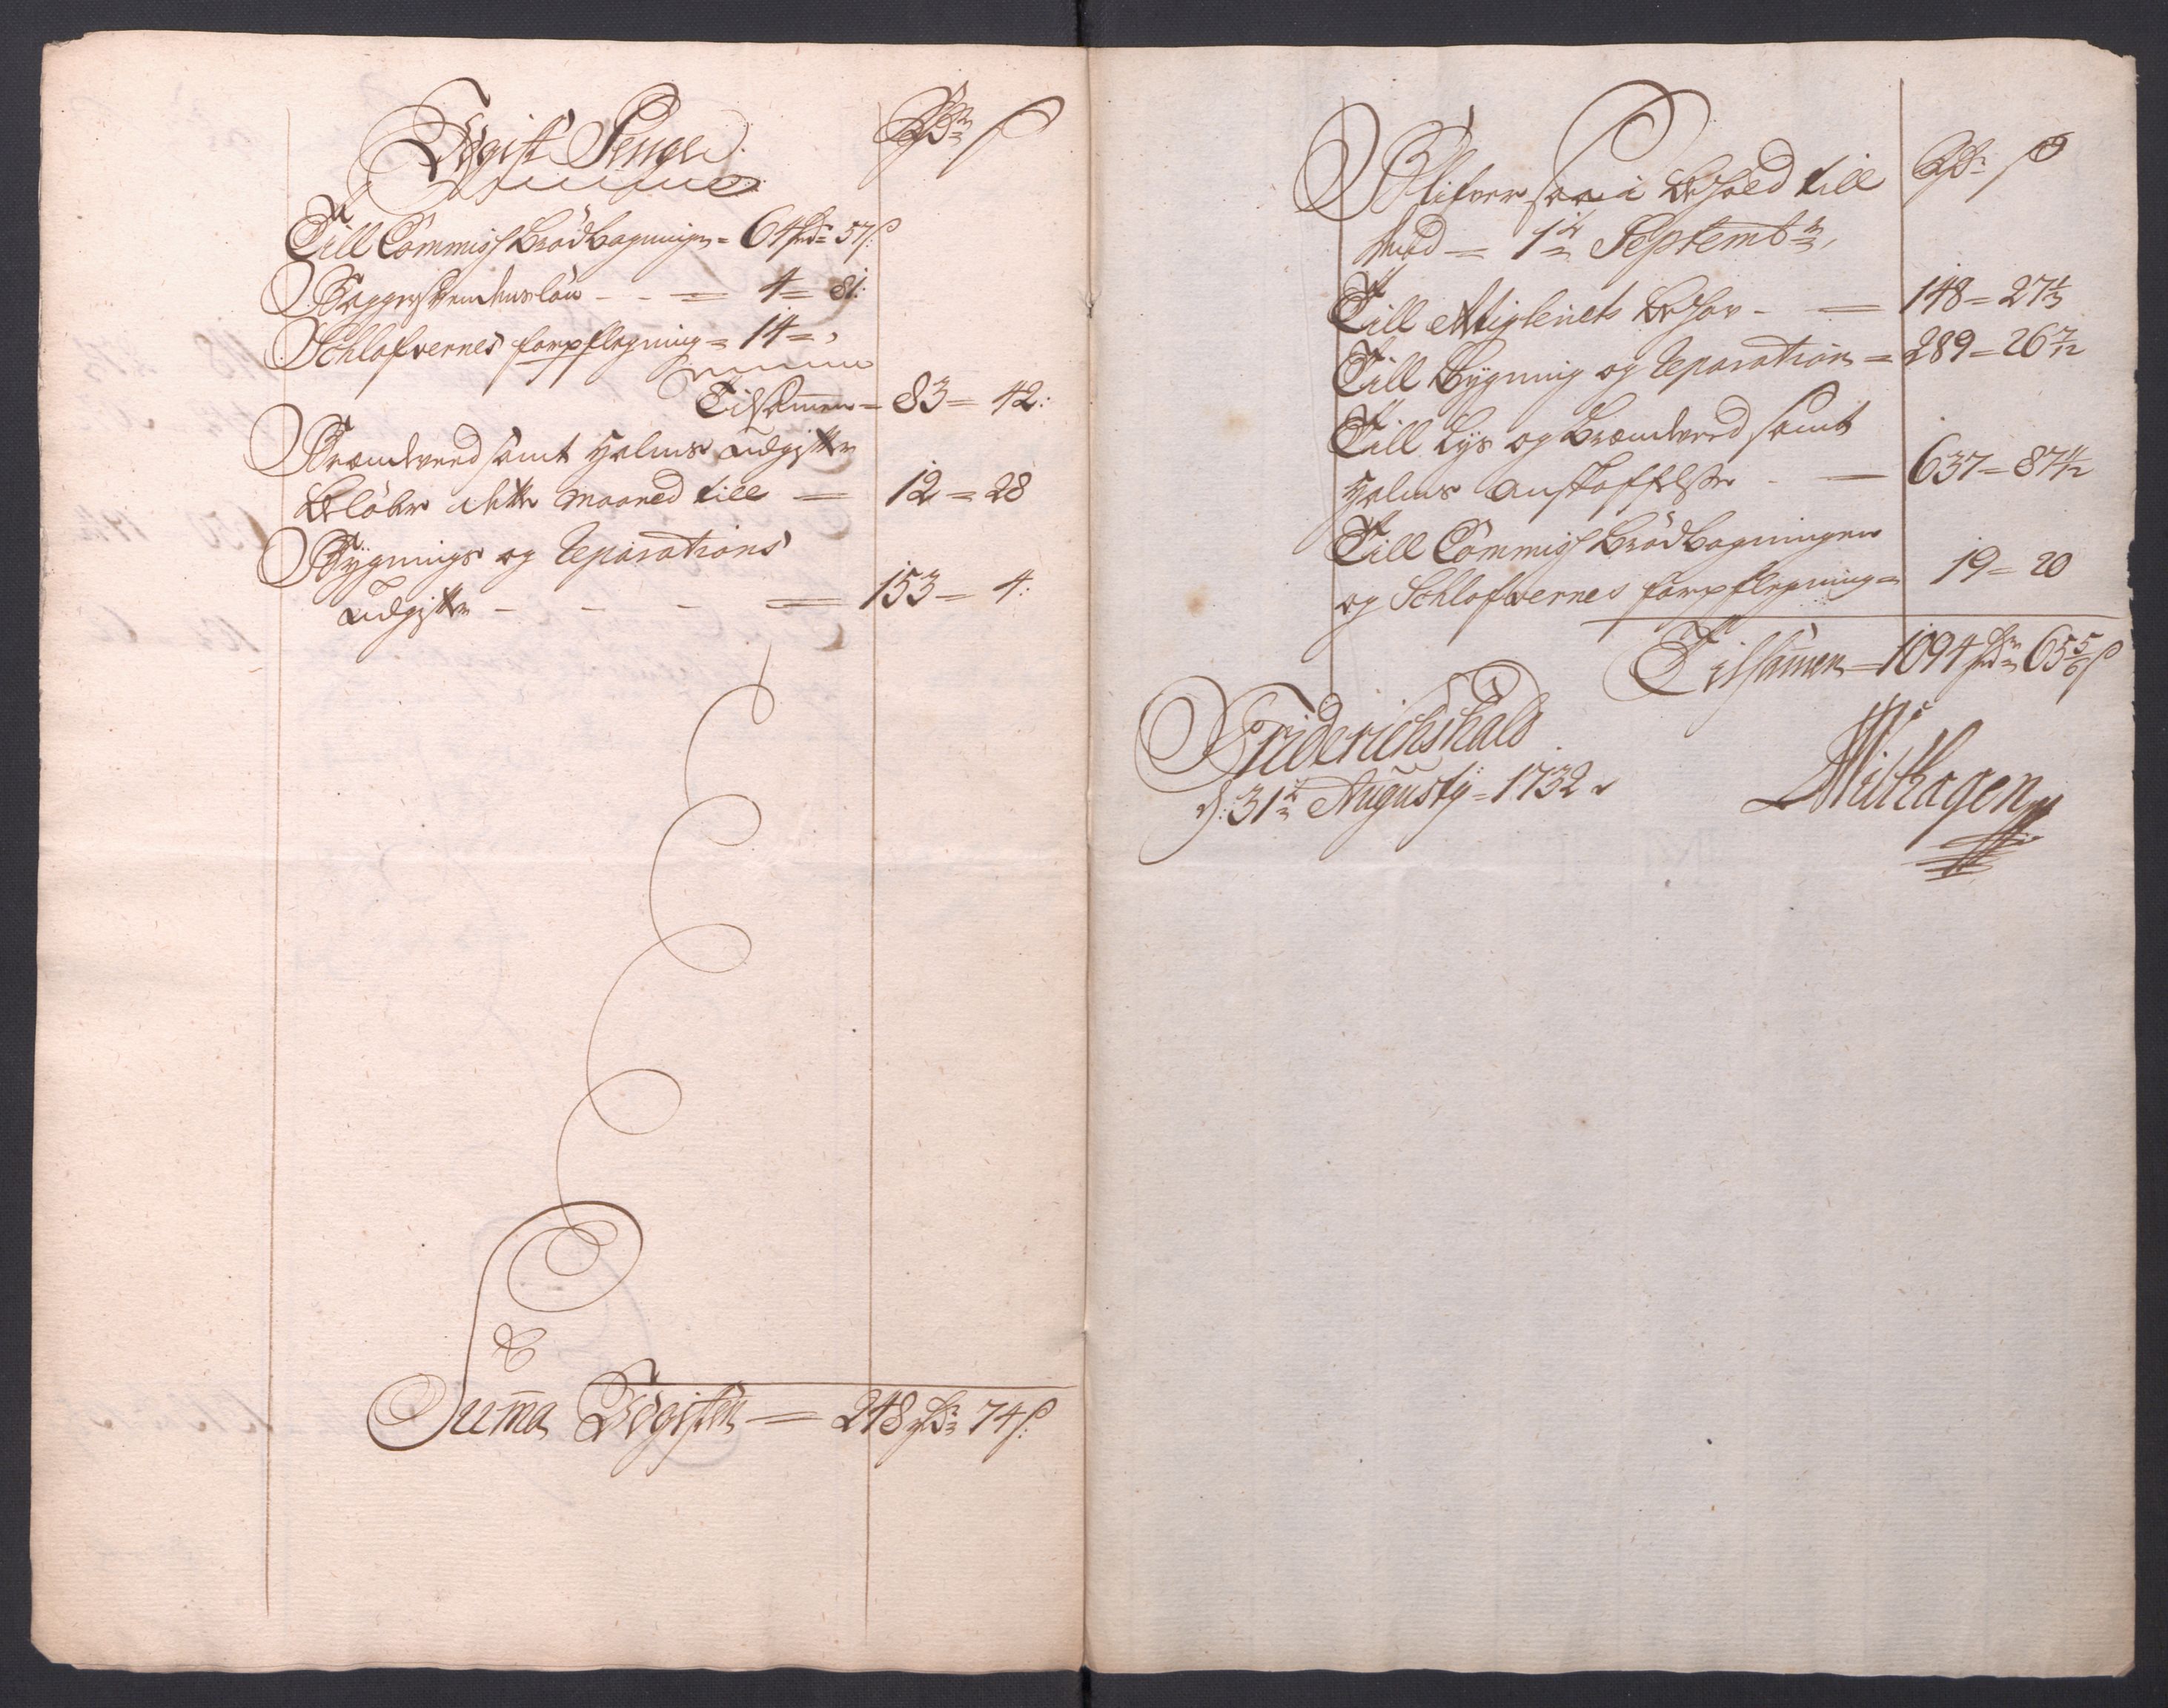 Udgift Penge
Rdr ß
Till Commiss Brödbagningen = 64 Rdr 57 ß:
Baggersvendenes lön - - = 4 = 81:
Schlafvernes forpflegning = 14 = ,
Tilsamen = 83 = 42:
Brændeved samt Halms udgifter
beløber dette Maaned till = 12 = 28
Bygnings og Reparations
udgifter - - - = 153 = 4:
Suma Udgiften = 248 Rdr 74 ß:
Blifver saa i behold till
Rdr ß
= 1te Septembr,
Till behov - = 148 = 27 1/3
Till Bygning og Reparation = 289 = 26 7/12
Till Lys og Brændeved samt
Halms anskaffelse - = 637 = 87 11/12
Till Commiss Brödbagningen
og Schlafvernes forpflegning = 19 = 20
Tilsamen = 1094 Rdr 65 5/6 ß
Friderichshald
d: 31te Augusty = 1732
Withagen